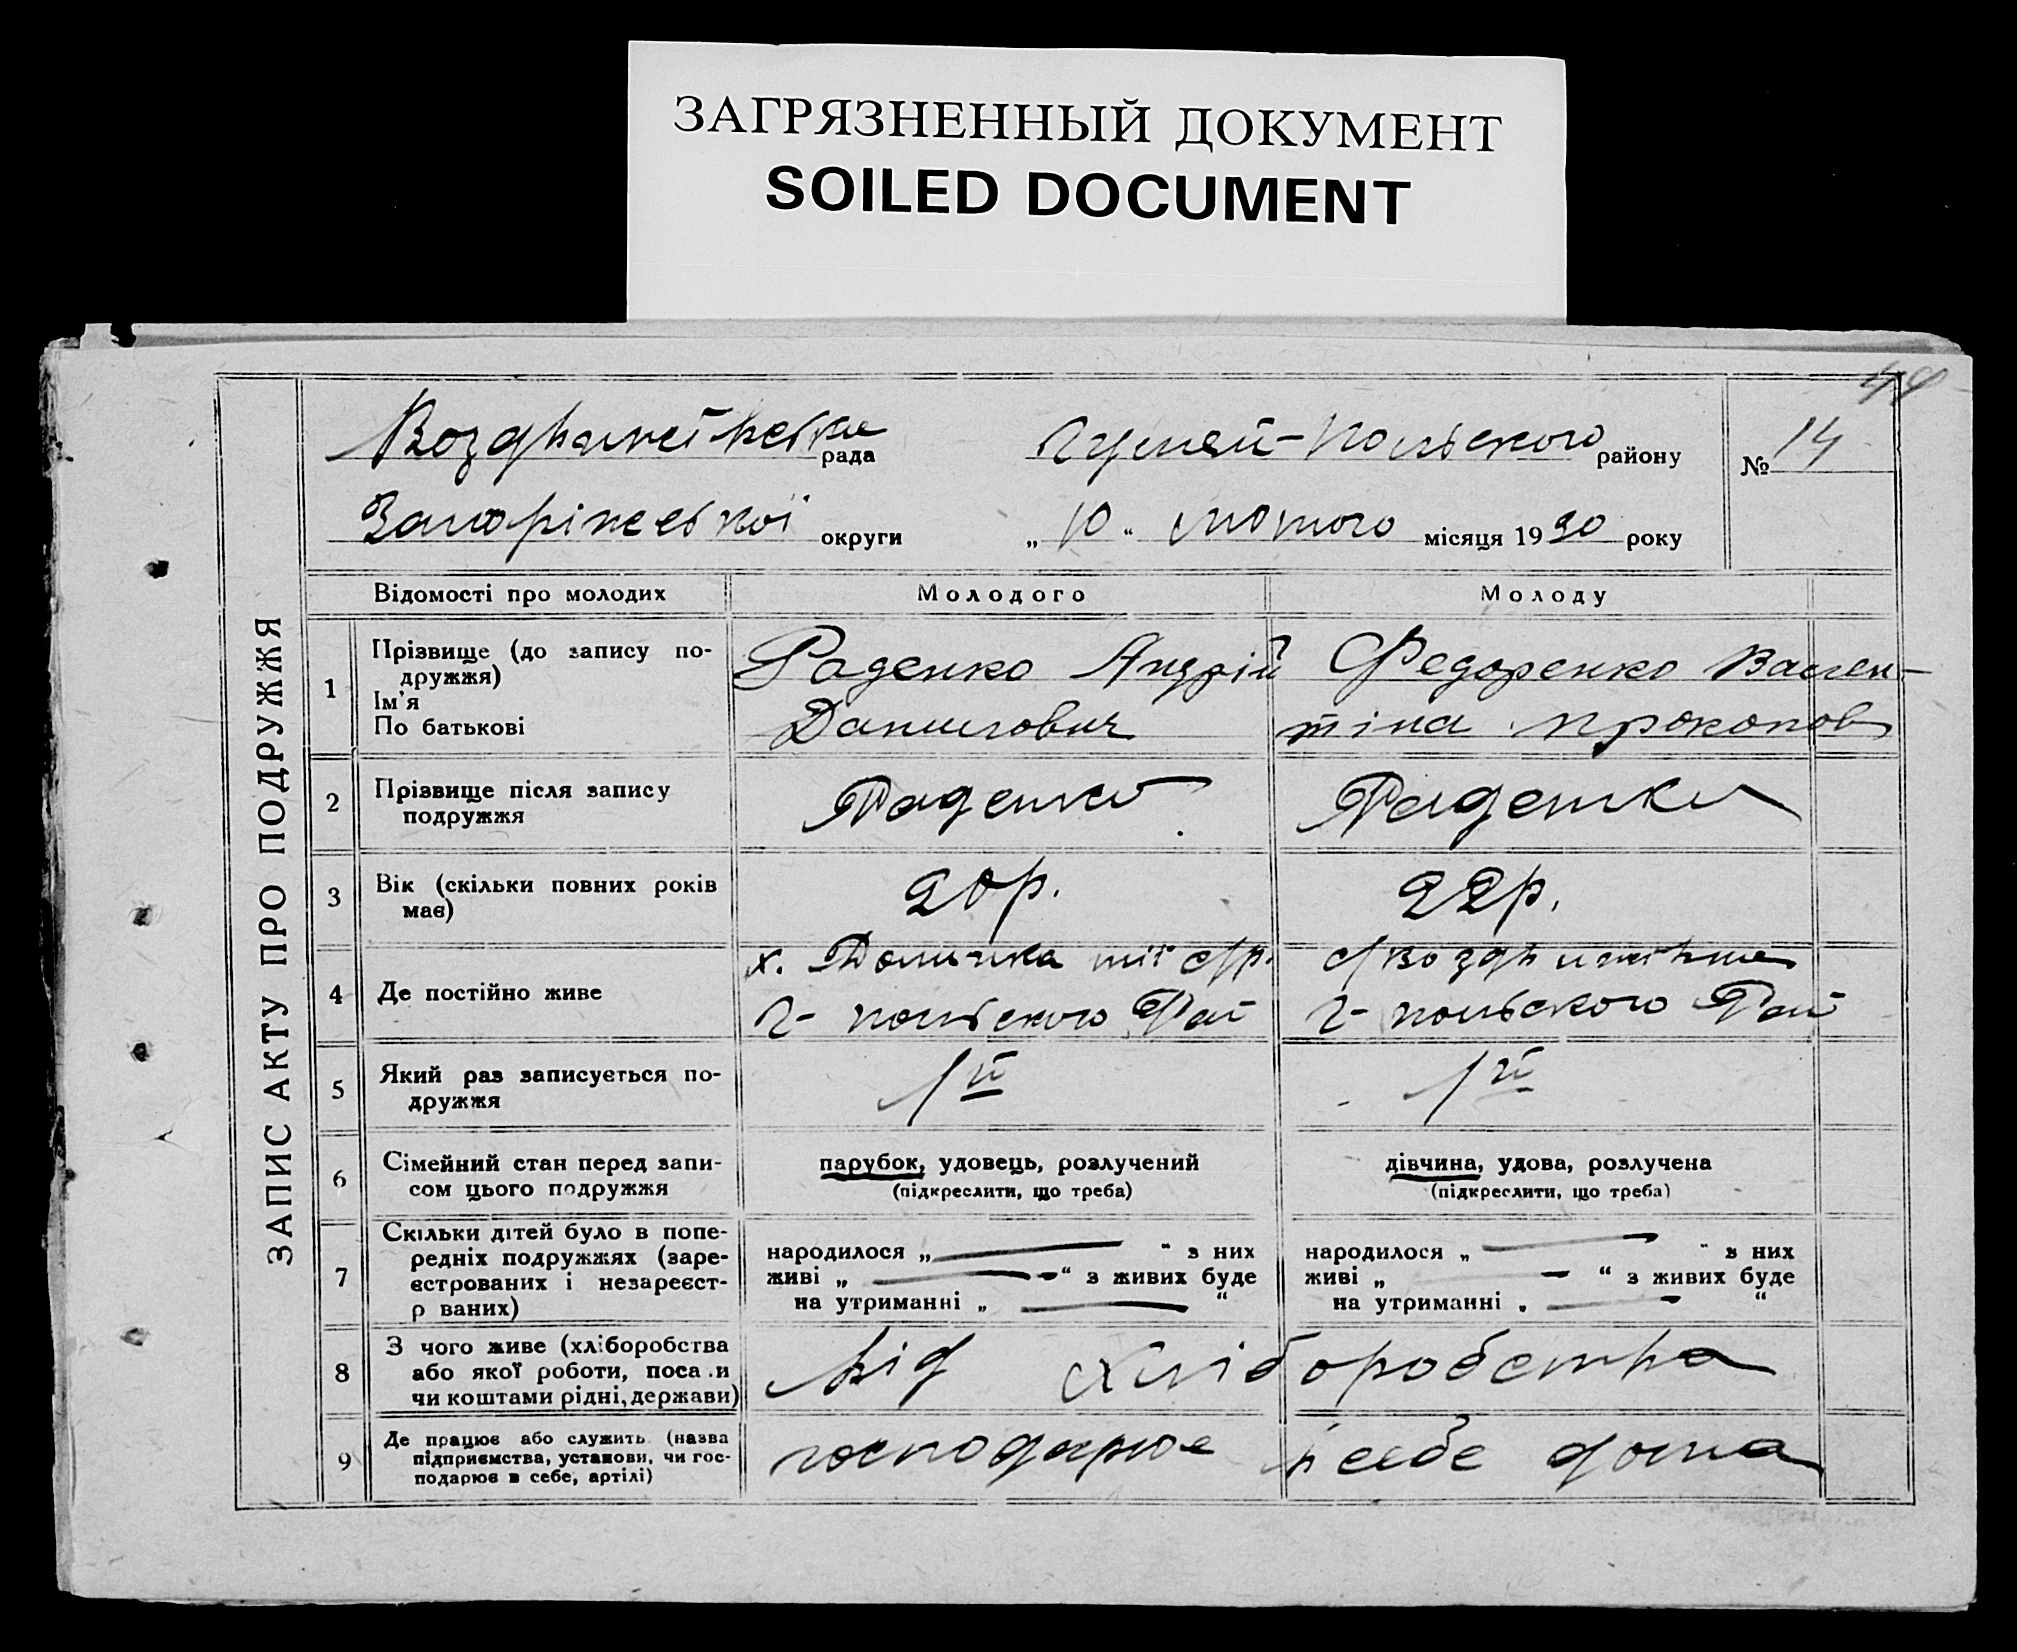 ЗАГРЯЗНЕННЫЙ ДОКУМЕНТ
SOILED DOCUMENT
ЗАПИС АКТУ ПРО ПОДРУЖЖЯ
рада Гуляй-Польского району № 14
Запоріжської округи „ 10 “ лютого місяця 19 30 року
Відомості про молодих Молодого Молоду
1 Прізвище (до запису по-
дружжя)
Ім'я
По батькові
Раденко Андрій
Данилович
Федоренко Вален-
тіна Прокопов
2 Прізвище після запису
подружжя
Раденко
Раденко
3 Вік (скільки повних років
має)
20р.
22р.
4 Де постійно живе
х. Долинка тії с/р.
Г-польского Рай
Г-польского Рай
5 Який раз записується по-
дружжя
1й
1й
6 Сімейний стан перед запи-
сом цього подружжя
парубок, удовець, розлучений
(підкреслити, що треба)
дівчина, удова, розлучена
(підкреслити, що треба)
7 Скільки дітей було в попе-
редніх подружжях (заре-
єстрованих і незареєст-
р ваних)
народилося „ “ з них
живі „ “ з живих буде
на утриманні „ “
народилося „ “ з них
живі „ “ з живих буде
на утриманні „ “
8 З чого живе (хліборобства
або якої роботи, поса и
чи коштами рідні, держави)
від хліборобства
9 Де працює або служить (назва
підприємства, установи, чи гос-
подарює в себе, артілі)
господарює в себе дома